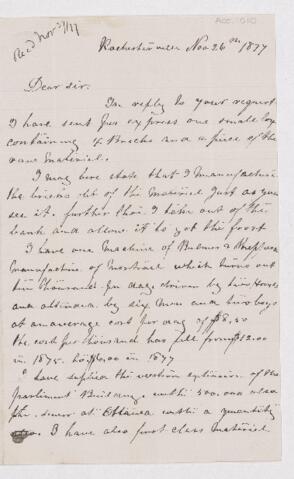 Acc. 010
Rec'd Nov 27/77
Rochesterville Nov. 26th 1877
Dear Sir.
In reply to your request
I have sent per express one small box
containing 4 Bricks and a piece of the
raw Material.
I may here state that I manufacture
the bricks out of the Material Just as you
see it. further than I take out of the
bank and allow it to get the frost
I have one Machine of Bulmer & Sheppard
Manufacture of Montreal which turns out
ten thousand per day driven by two horses
and attended by six Men and two boys
at an average cost per day of $8.50
The cost per thousand has fell from $12.00
in 1875. to $6.00 in 1877
I have supplied the western extension of the
Parliament Building with 500.000 also
the sewer at Ottawa with a quantity
I have also first class material